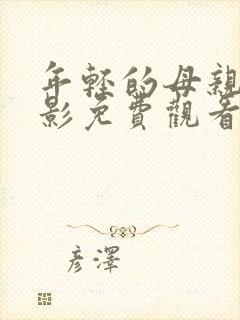 年轻的母親
影免費觀看
彦澤